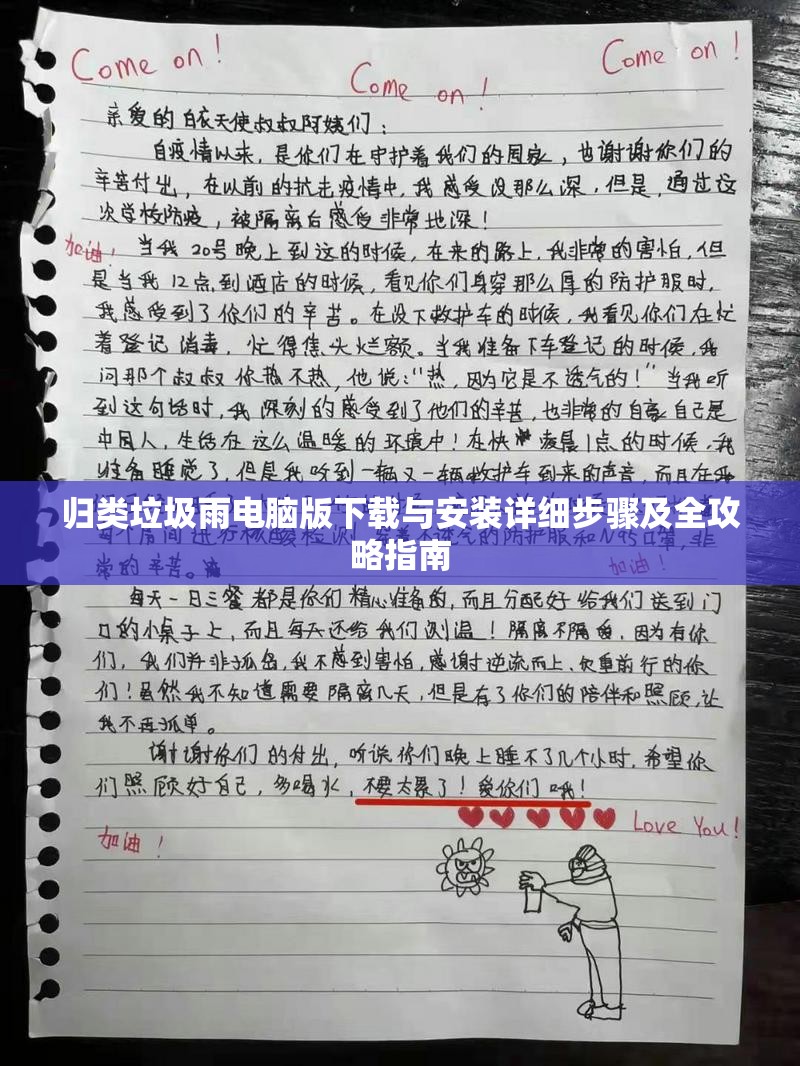 Come on!
Come on!
Come on!
亲爱的白衣天使叔叔阿姨们：
自疫情以来，是你们在守护着我们的国家，也谢谢你们的
辛苦付出，在以前的抗击疫情中，我感受没那么深，但是，通过这
次学校防疫，被隔离后感受非常地深！
加油！
当我20号晚上到这的时候，在来的路上，我非常的害怕，但
是当我12点到酒店的时候，看见你们身穿那么厚的防护服时，
我感受到了你们的辛苦。在没下救护车的时候，我看见你们在忙
着登记消毒，忙得焦头烂额。当我准备下车登记的时候，我
问那个叔叔你热不热，他说："热，因为它是不透气的！"当我听
到这句话时，我深刻的感受到了他们的辛苦，也非常的自豪自己是
中国人，生活在这么温暖的环境中！在快凌晨1点的时候，我
准备睡觉了，但是我听到一辆又一辆救护车到来的声音，而且在我
归类垃圾雨电脑版下载与安装详细步骤及全攻
略指南
每个房间进行核酸检测，穿着不透气的防护服和N95口罩，非
常的辛苦。
加油！
每天一日三餐都是你们精心准备的，而且分配好给我们送到门
口的小桌子上，而且每天还给我们测温！隔离不隔爱，因为有你
们，我们并非孤岛，我不感到害怕，感谢逆流而上、负重前行的你
们！虽然我不知道需要隔离几天，但是有了你们的陪伴和照顾，让
我不再孤单。
谢谢你们的付出，听说你们晚上睡不了几个小时，希望你
们照顾好自己，多喝水，不要太累了！爱你们哦！
Love You!
加油！